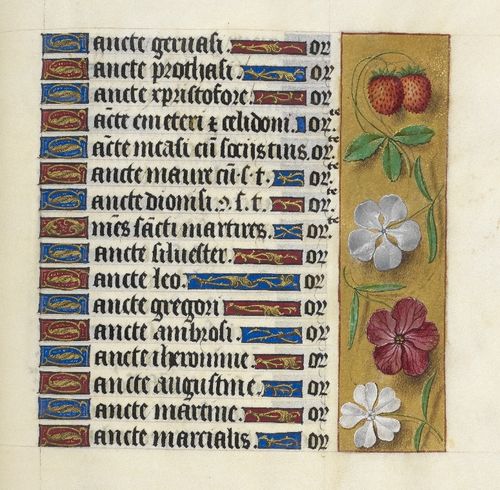 Sancte geruasi. or
Sancte prothasi. or
Sancte xpristofore. or
Sācte emeteri ⁊ celidoni. orte
Sācte measi cū socijs tuis. orte
Sancte maure cū. s. t. orte
Sancte dionisi ↄ s. t. orte
Omēs sācti martires. orte
Sancte siluester. or
Sancte leo. or
Sancte gregori or
Sancte ambrosi. or
Sancte iheronime. or
Sancte augustine. or
Sancte martine. or
Sancte marcialis. or